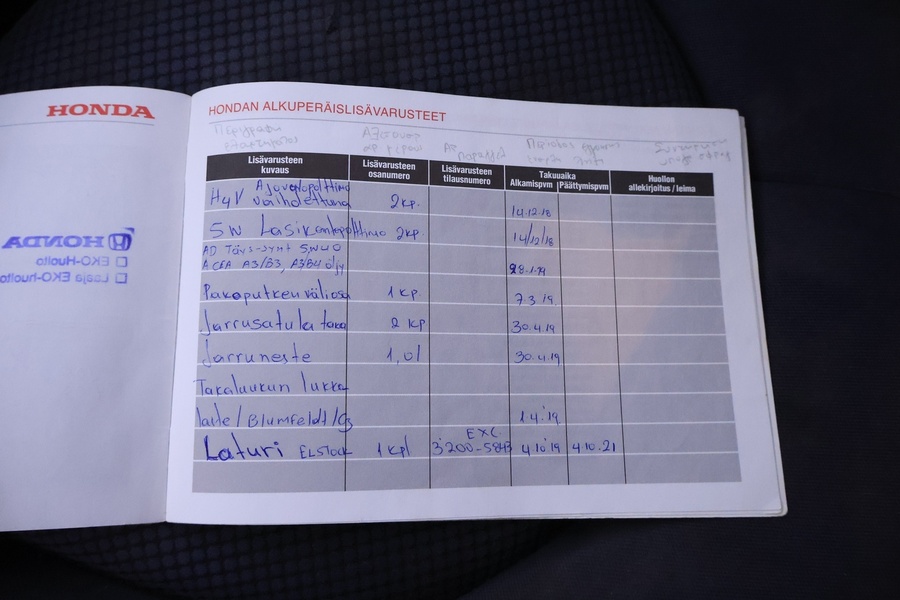 HONDA
HONDAN ALKUPERÄISLISÄVARUSTEET
Περιγραφη
Lisävarusteen kuvaus
Lisävarusteen osanumero
Lisävarusteen tilausnumero
Takuuaika
Alkamispvm Päättymispvm
Huollon allekirjoitus / leima
H4V Ajovalopolttimo vaihdettuna 2kp. 14.12.18
5W Lasikantapolttimo 2kp. 14/12/18
AD Täys-synt 5W40
ACEA A3/B3, A3/B4 öljy 28.1.19
Pakoputken väliosa 1 kp. 7.3.19
Jarrusatula taka 2 kp 30.4.19
Jarruneste 1,0l 30.4.19
Takaluukun lukko
laite / Blumfeldt / 1.4.19
Laturi ELSTOCK 1 kpl EXC. 4.10.19 4.10.21
HONDA
EKO-Huolto
Laaja EKO-huolto